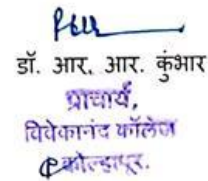 डॉ. आर. आर. कुंभार
प्राचार्य,
विवेकानंद कॉलेज
कोल्हापूर.